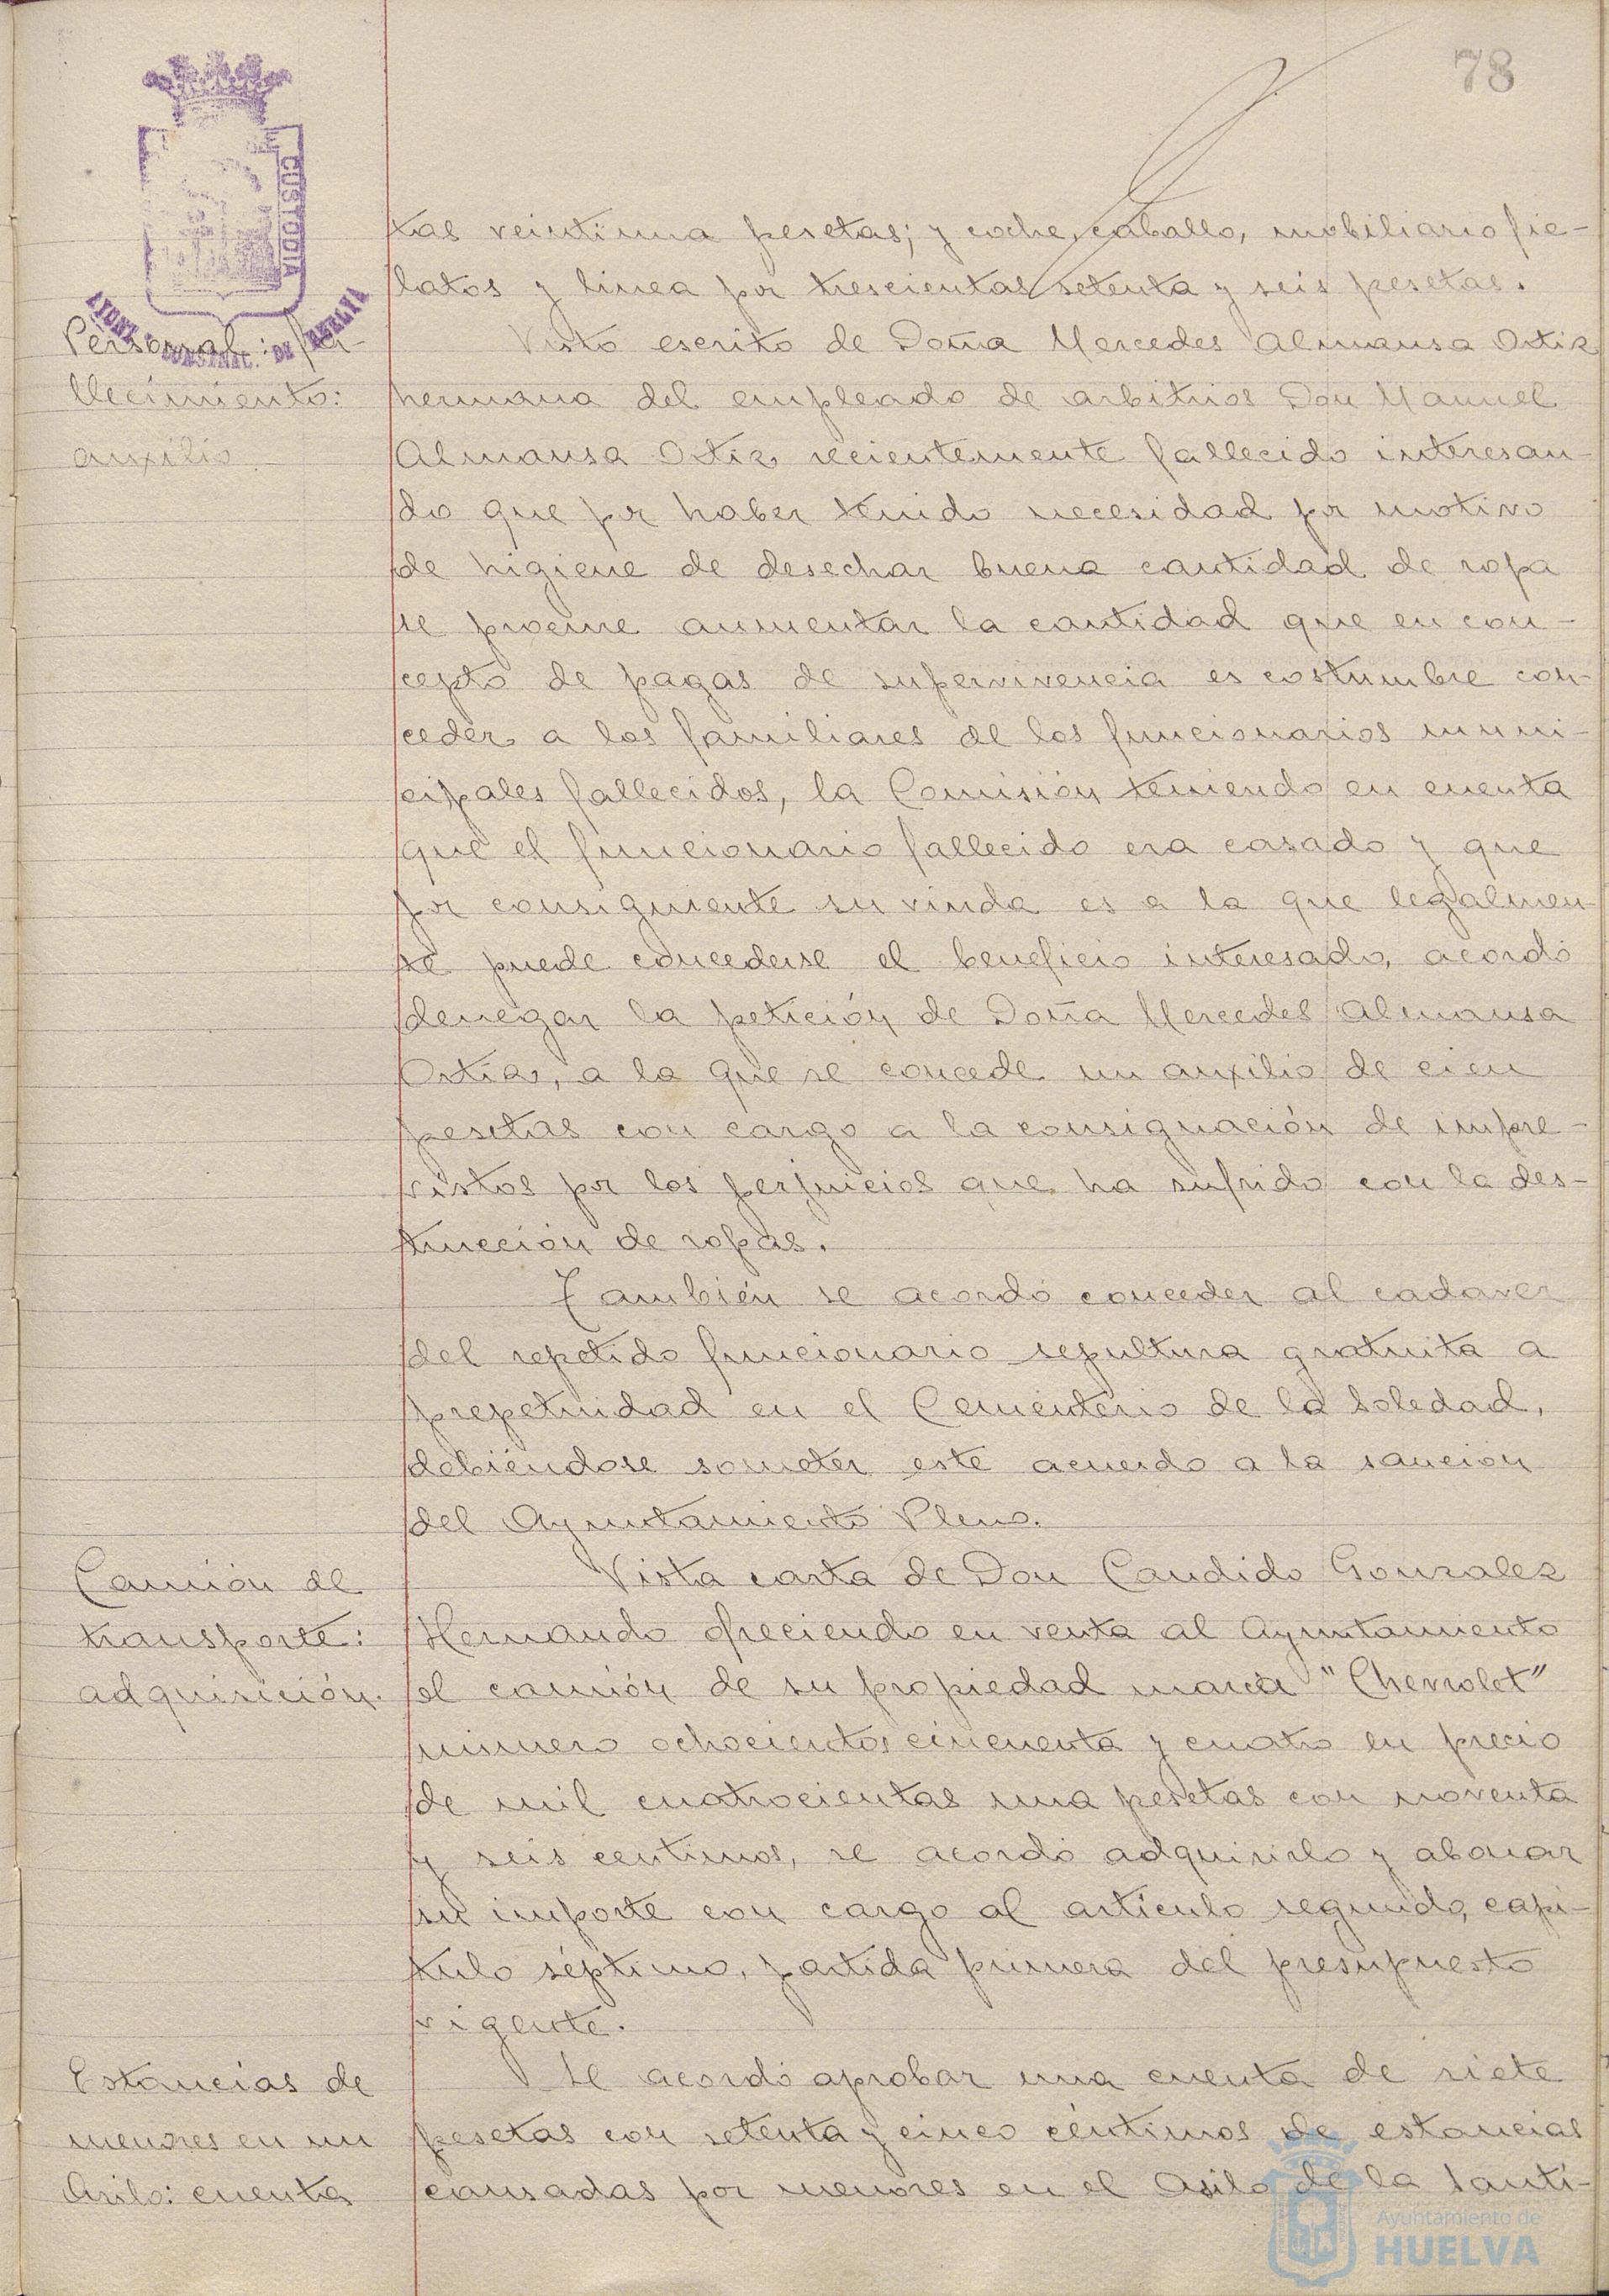 78
CUSTODIA
tas veintiuna pesetas; y coche, caballo, mobiliario fie-
latos y linea por trescientas setenta y seis pesetas.
Personal: fa-
llecimiento:
auxilio.
Visto escrito de Doña Mercedes Almansa Ortiz
hermana del empleado de arbitrios Don Manuel
Almansa Ortiz, recientemente fallecido interesan-
do que por haber tenido necesidad por motivo
de higiene de desechar buena cantidad de ropa
se procure aumentar la cantidad que en con-
cepto de pagas de supervivencia es costumbre con-
ceder a los familiares de los funcionarios muni-
cipales fallecidos, la Comisión teniendo en cuenta
que el funcionario fallecido era casado y que
por consiguiente su viuda es a la que legalmen-
te puede concederse el beneficio interesado, acordó
denegar la petición de Doña Mercedes Almansa
Ortiz, a la que se concede un auxilio de cien
pesetas con cargo a la consignación de impre-
vistos por los perjuicios que ha sufrido con la des-
trucción de ropas.
También se acordó conceder al cadaver
del repetido funcionario sepultura gratuita a
prepetuidad en el Cementerio de la Soledad,
debiéndose someter este acuerdo a la sancion
del Ayuntamiento Pleno.
Camión de
transporte:
adquisición.
Vista carta de Don Candido Gonzalez
Hernando ofreciendo en venta al Ayuntamiento
el camión de su propiedad marca "Chevrolet"
número ochocientos cincuenta y cuatro en precio
de mil cuatrocientas una pesetas con noventa
y seis centimos, se acordó adquirirlo y abonar
su importe con cargo al artículo segundo, capi-
tulo séptimo, partida primera del presupuesto
vigente.
Estancias de
menores en un
Asilo: cuenta
Se acordó aprobar una cuenta de siete
pesetas con setenta y cinco céntimos de estancias
causadas por menores en el Asilo de la Santí-
Ayuntamiento de
HUELVA